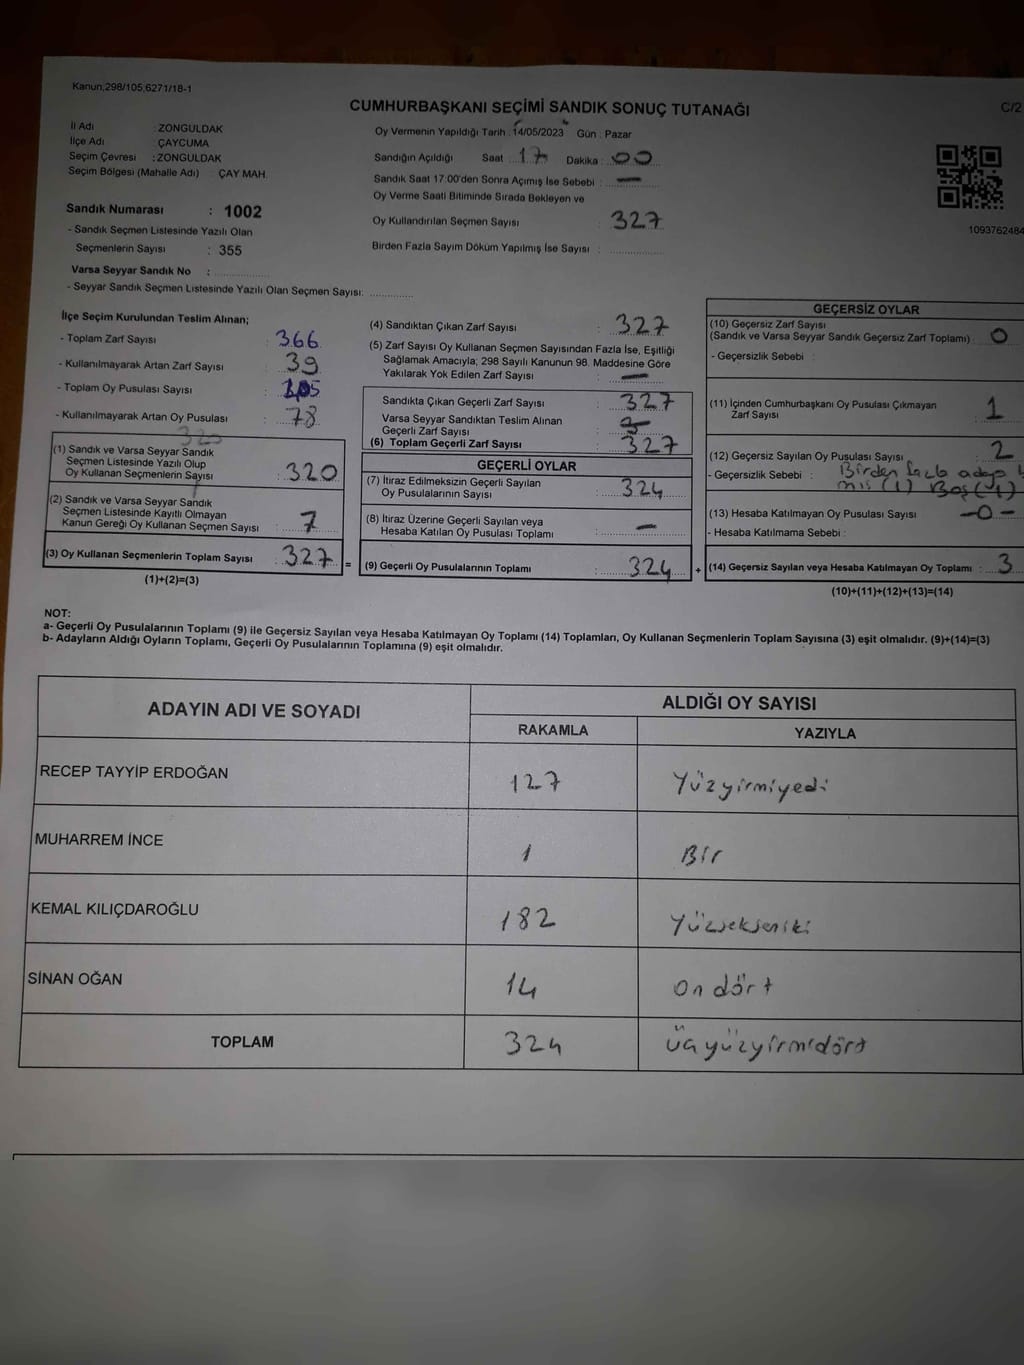 Kanun;298/105,6271/18-1
CUMHURBAŞKANI SEÇİMİ SANDIK SONUÇ TUTANAĞI
C/2
İl Adı : ZONGULDAK
İlçe Adı : ÇAYCUMA
Seçim Çevresi : ZONGULDAK
Seçim Bölgesi (Mahalle Adı) : ÇAY MAH.
Sandık Numarası : 1002
- Sandık Seçmen Listesinde Yazılı Olan
Seçmenlerin Sayısı : 355
Varsa Seyyar Sandık No :
- Seyyar Sandık Seçmen Listesinde Yazılı Olan Seçmen Sayısı:
Oy Vermenin Yapıldığı Tarih : 14/05/2023 Gün : Pazar
Sandığın Açıldığı Saat 17 Dakika : 00
Sandık Saat 17:00'den Sonra Açımış İse Sebebi : —
Oy Verme Saati Bitiminde Sırada Bekleyen ve
Oy Kullandırılan Seçmen Sayısı : 327
Birden Fazla Sayım Döküm Yapılmış İse Sayısı :
1093762484
İlçe Seçim Kurulundan Teslim Alınan;
- Toplam Zarf Sayısı : 366
- Kullanılmayarak Artan Zarf Sayısı : 39
- Toplam Oy Pusulası Sayısı :
- Kullanılmayarak Artan Oy Pusulası : 78
320
(1) Sandık ve Varsa Seyyar Sandık
Seçmen Listesinde Yazılı Olup
Oy Kullanan Seçmenlerin Sayısı : 320
(2) Sandık ve Varsa Seyyar Sandık
Seçmen Listesinde Kayıtlı Olmayan
Kanun Gereği Oy Kullanan Seçmen Sayısı : 7
(3) Oy Kullanan Seçmenlerin Toplam Sayısı : 327
(1)+(2)=(3)
=
(4) Sandıktan Çıkan Zarf Sayısı : 327
(5) Zarf Sayısı Oy Kullanan Seçmen Sayısından Fazla İse, Eşitliği
Sağlamak Amacıyla; 298 Sayılı Kanunun 98. Maddesine Göre
Yakılarak Yok Edilen Zarf Sayısı : —
Sandıkta Çıkan Geçerli Zarf Sayısı : 327
Varsa Seyyar Sandıktan Teslim Alınan
Geçerli Zarf Sayısı :
(6) Toplam Geçerli Zarf Sayısı : 327
GEÇERLİ OYLAR
(7) İtiraz Edilmeksizin Geçerli Sayılan
Oy Pusulalarının Sayısı : 324
(8) İtiraz Üzerine Geçerli Sayılan veya
Hesaba Katılan Oy Pusulası Toplamı : —
(9) Geçerli Oy Pusulalarının Toplamı : 324
+
GEÇERSİZ OYLAR
(10) Geçersiz Zarf Sayısı
(Sandık ve Varsa Seyyar Sandık Geçersiz Zarf Toplamı) : 0
- Geçersizlik Sebebi :
(11) İçinden Cumhurbaşkanı Oy Pusulası Çıkmayan
Zarf Sayısı : 1
(12) Geçersiz Sayılan Oy Pusulası Sayısı : 2
- Geçersizlik Sebebi : Birden fazla
mış (1) Boş (1)
(13) Hesaba Katılmayan Oy Pusulası Sayısı : -0-
- Hesaba Katılmama Sebebi :
(14) Geçersiz Sayılan veya Hesaba Katılmayan Oy Toplamı : 3
(10)+(11)+(12)+(13)=(14)
NOT:
a- Geçerli Oy Pusulalarının Toplamı (9) ile Geçersiz Sayılan veya Hesaba Katılmayan Oy Toplamı (14) Toplamları, Oy Kullanan Seçmenlerin Toplam Sayısına (3) eşit olmalıdır. (9)+(14)=(3)
b- Adayların Aldığı Oyların Toplamı, Geçerli Oy Pusulalarının Toplamına (9) eşit olmalıdır.
ADAYIN ADI VE SOYADI
ALDIĞI OY SAYISI
RAKAMLA YAZIYLA
RECEP TAYYİP ERDOĞAN 127 Yüzyirmiyedi
MUHARREM İNCE 1 Bir
KEMAL KILIÇDAROĞLU 182 Yüzsekseniki
SİNAN OĞAN 14 On dört
TOPLAM 324 üçyüzyirmidört